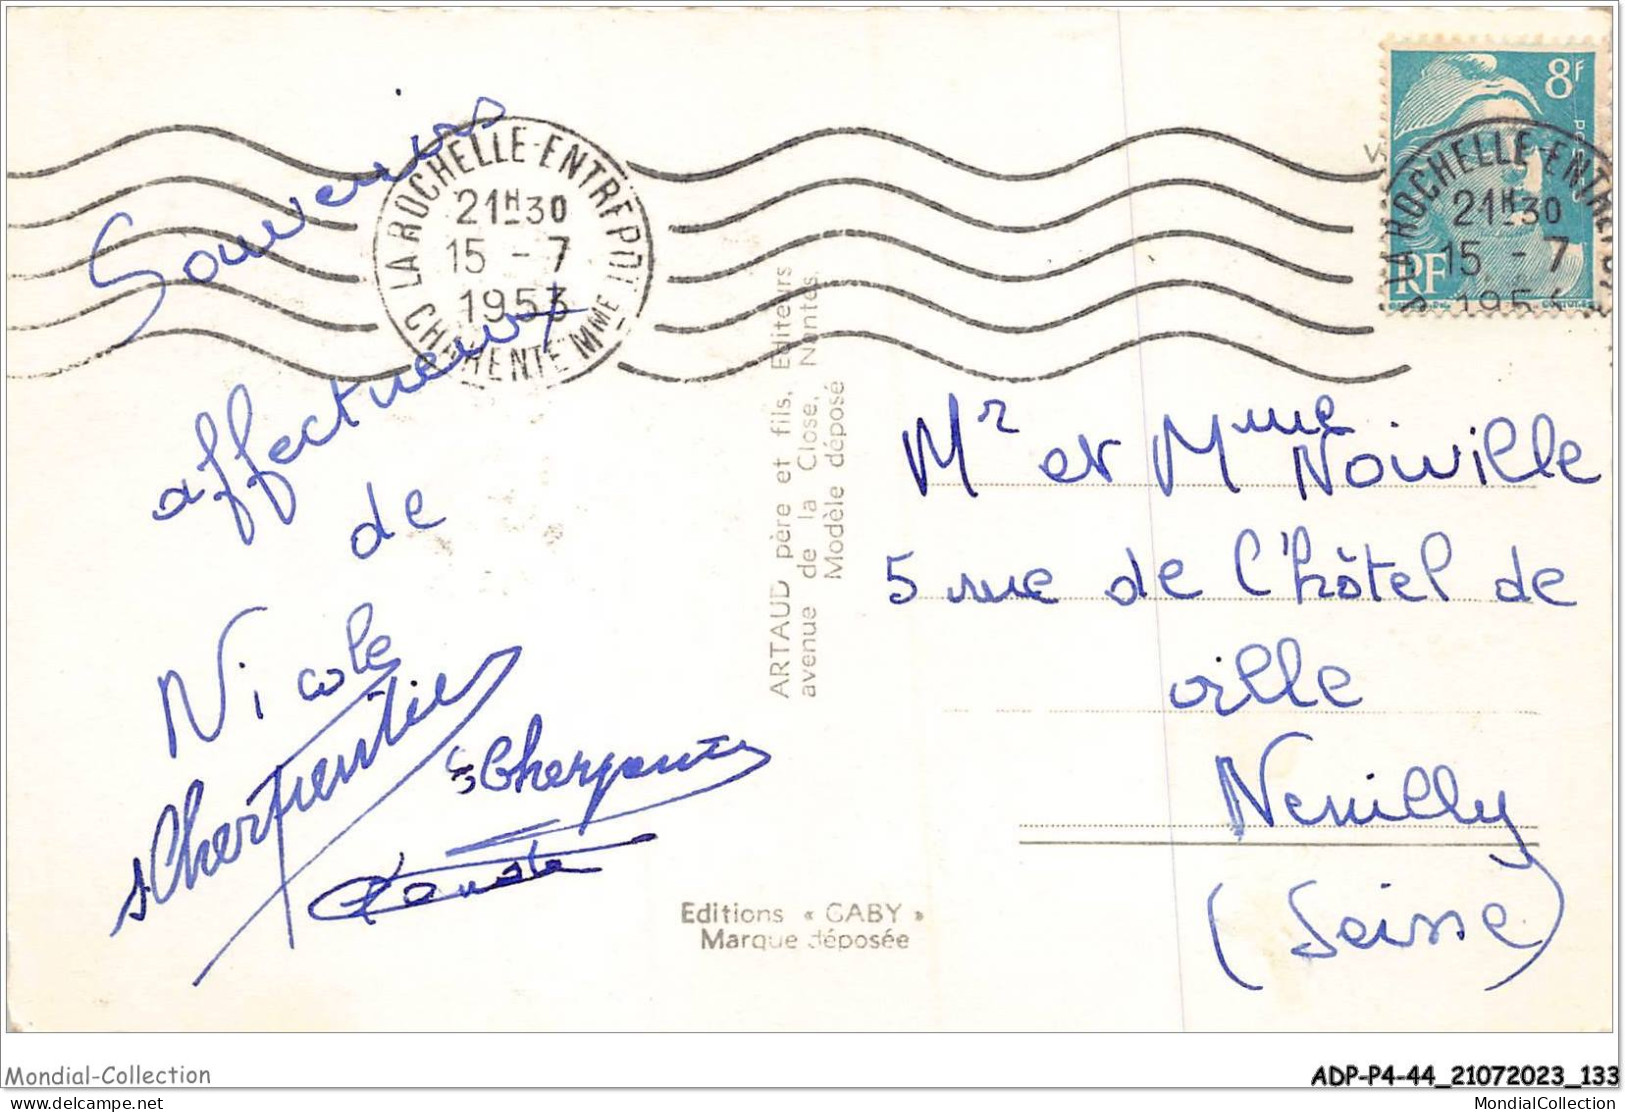 Souvenirs
affectueux
de
Nicole
LA ROCHELLE-ENTREPÔT
21H30
15 - 7
1953
CHARENTE MME
ARTAUD père et fils, Editeurs
avenue de la Close, Nantes.
Modèle déposé
Editions « GABY »
Marque déposée
8F
RF
LA ROCHELLE-ENTREPÔT
21H30
15 - 7
Mr et Mme Noiville
5 rue de l'hôtel de
ville
Neuilly
(Seine)
Mondial-Collection
ADP-P4-44_21072023_133
delcampe.net
MondialCollection